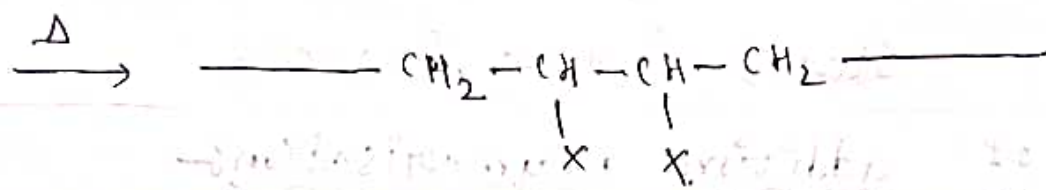 Δ
CH₂ - CH - CH - CH₂
X X